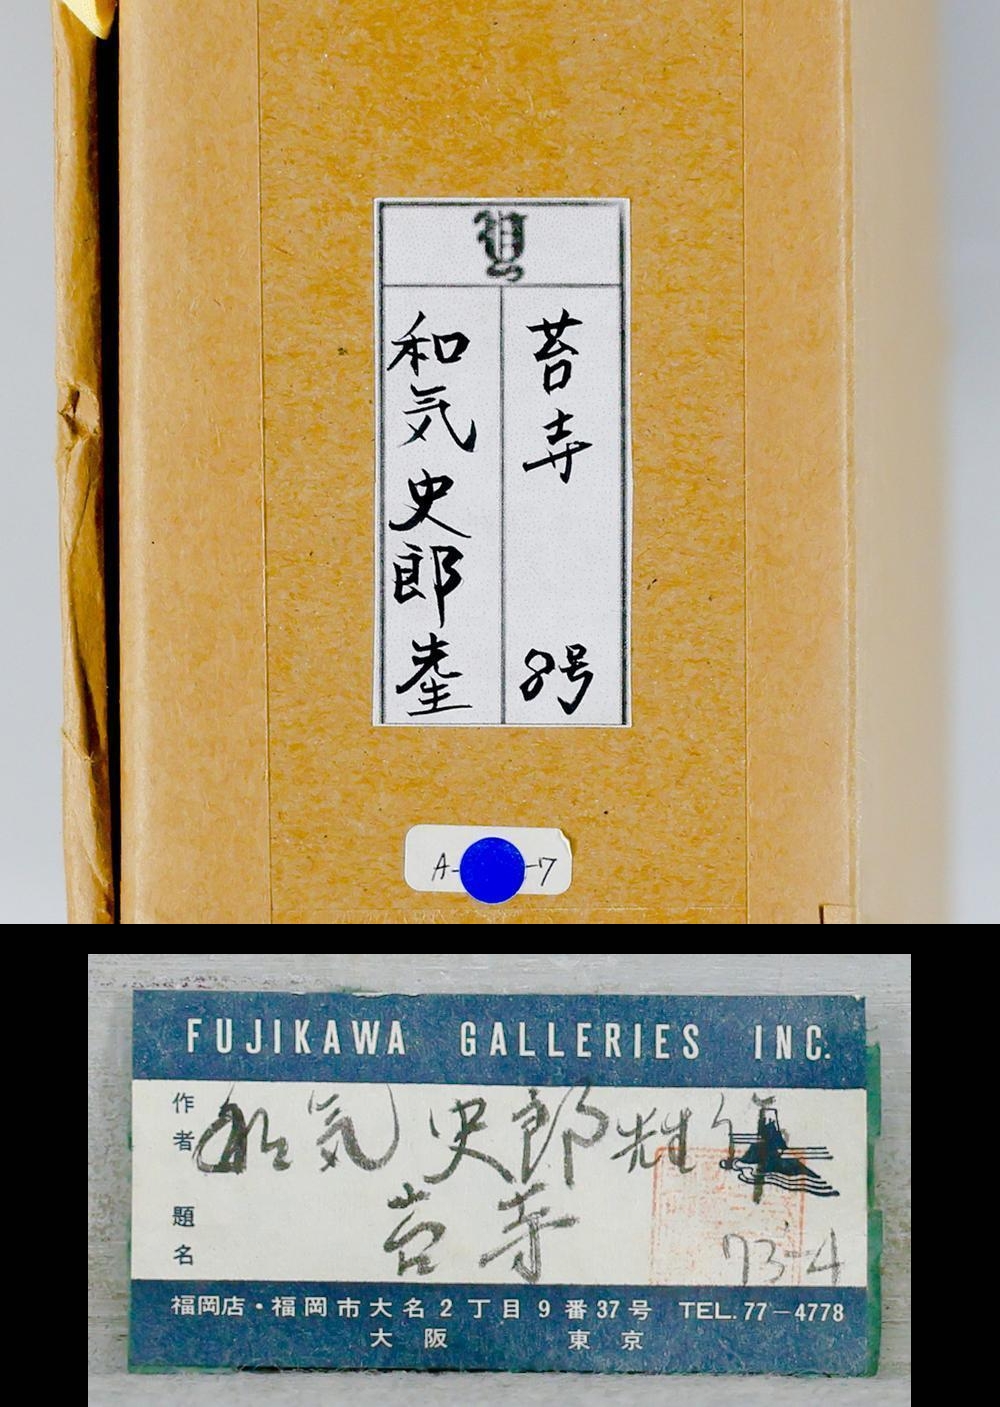 苔寺 8号
和気史郎先生
A-
-7
FUJIKAWA GALLERIES INC.
作者
和気史郎先生作
題名
苔寺
73-4
福岡店・福岡市大名2丁目9番37号 TEL.77-4778
大阪 東京